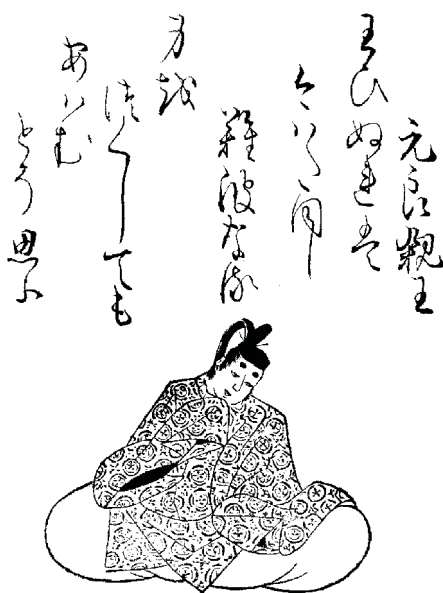 元良親王
わひぬれは
今はた同し
難波なる
身を
つくしても
あはむ
とそ思ふ